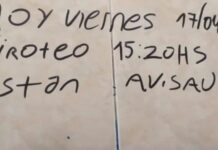 OY VIERNES 17/04
IROTEO 15:20HS
STAN AVISAU